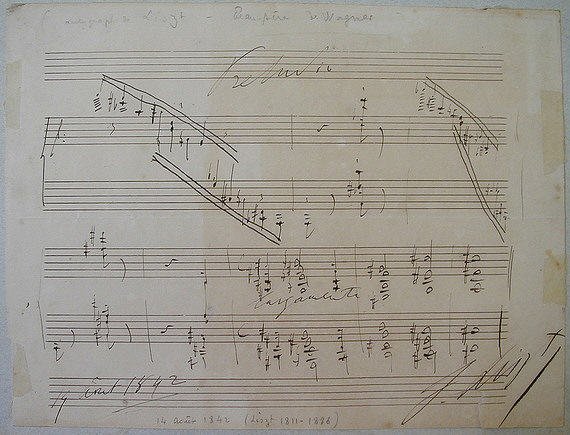 (autographe de Liszt - Beau-père de Wagner
Preludio
largamente
14 août 1842
F. Liszt
14 août 1842 (Liszt 1811-1886)